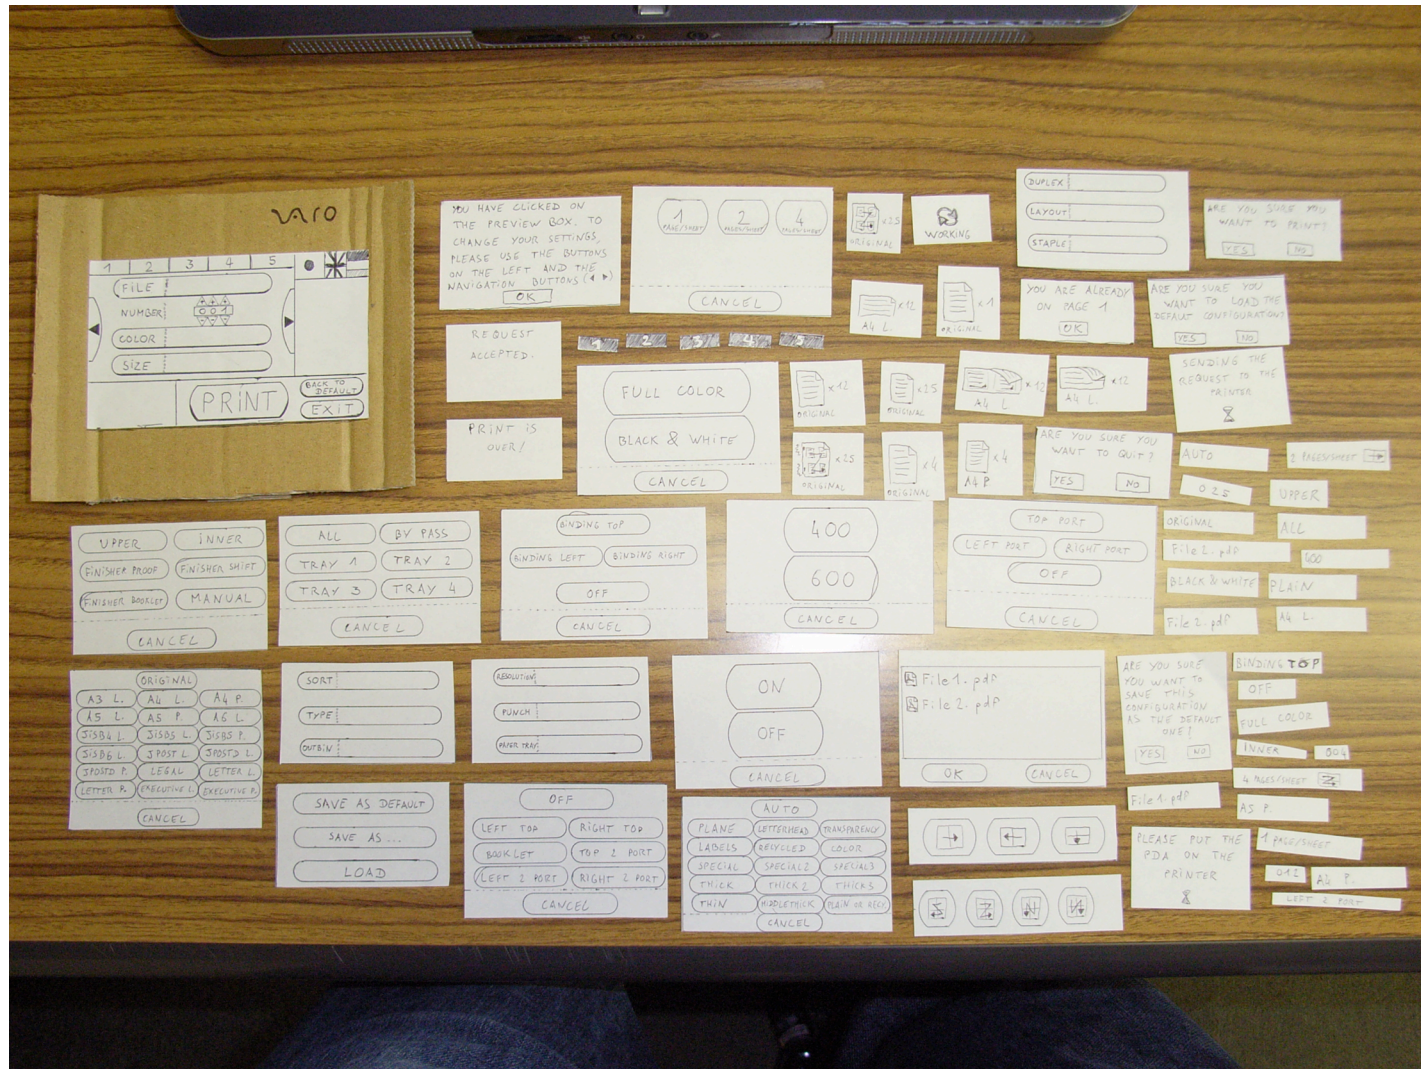 1 2 3 4 5
FILE
NUMBER 001
COLOR
SIZE
PRINT
BACK TO
DEFAULT
EXIT
YOU HAVE CLICKED ON
THE PREVIEW BOX. TO
CHANGE YOUR SETTINGS,
PLEASE USE THE BUTTONS
ON THE LEFT AND THE
NAVIGATION BUTTONS (◀ ▶)
OK
1 2 4
PAGE/SHEET PAGES/SHEET PAGES/SHEET
CANCEL
x25
ORIGINAL
WORKING
DUPLEX
LAYOUT
STAPLE
ARE YOU SURE YOU
WANT TO PRINT?
YES NO
x12
A4 L.
x1
ORIGINAL
YOU ARE ALREADY
ON PAGE 1
OK
ARE YOU SURE YOU
WANT TO LOAD THE
DEFAULT CONFIGURATION?
YES NO
REQUEST
ACCEPTED.
1 2 3 4 5
PRINT IS
OVER!
FULL COLOR
BLACK & WHITE
CANCEL
x12
ORIGINAL
x25
ORIGINAL
x12
A4 L.
x12
A4 L.
SENDING THE
REQUEST TO THE
PRINTER
x25
ORIGINAL
x4
ORIGINAL
x4
A4 P
ARE YOU SURE YOU
WANT TO QUIT?
YES NO
AUTO
2 PAGES/SHEET
025
UPPER
ORIGINAL
ALL
File 2. pdf
400
BLACK & WHITE
PLAIN
File 2. pdf
A4 L.
UPPER INNER
FINISHER PROOF FINISHER SHIFT
FINISHER BOOKLET MANUAL
CANCEL
ALL BY PASS
TRAY 1 TRAY 2
TRAY 3 TRAY 4
CANCEL
BINDING TOP
BINDING LEFT BINDING RIGHT
OFF
CANCEL
400
600
CANCEL
TOP PORT
LEFT PORT RIGHT PORT
OFF
CANCEL
ORIGINAL
A3 L. A4 L. A4 P.
A5 L. A5 P. A6 L.
JISB4 L. JISB5 L. JISB5 P.
JISB6 L. JPOST L. JPOSTD L.
JPOSTD P. LEGAL LETTER L.
LETTER P. EXECUTIVE L. EXECUTIVE P.
CANCEL
SORT
TYPE
OUTBIN
RESOLUTION
PUNCH
PAPER TRAY
ON
OFF
CANCEL
File 1. pdf
File 2. pdf
OK CANCEL
ARE YOU SURE
YOU WANT TO
SAVE THIS
CONFIGURATION
AS THE DEFAULT
ONE?
YES NO
BINDING TOP
OFF
FULL COLOR
INNER
004
4 PAGES/SHEET
File 1. pdf
A5 P.
SAVE AS DEFAULT
SAVE AS ...
LOAD
OFF
LEFT TOP RIGHT TOP
BOOKLET TOP 2 PORT
LEFT 2 PORT RIGHT 2 PORT
CANCEL
AUTO
PLANE LETTERHEAD TRANSPARENCY
LABELS RECYCLED COLOR
SPECIAL SPECIAL2 SPECIAL3
THICK THICK 2 THICK3
THIN MIDDLETHICK PLAIN OR RECY.
CANCEL
PLEASE PUT THE
PDA ON THE
PRINTER
1 PAGE/SHEET
012
A4 P.
LEFT 2 PORT